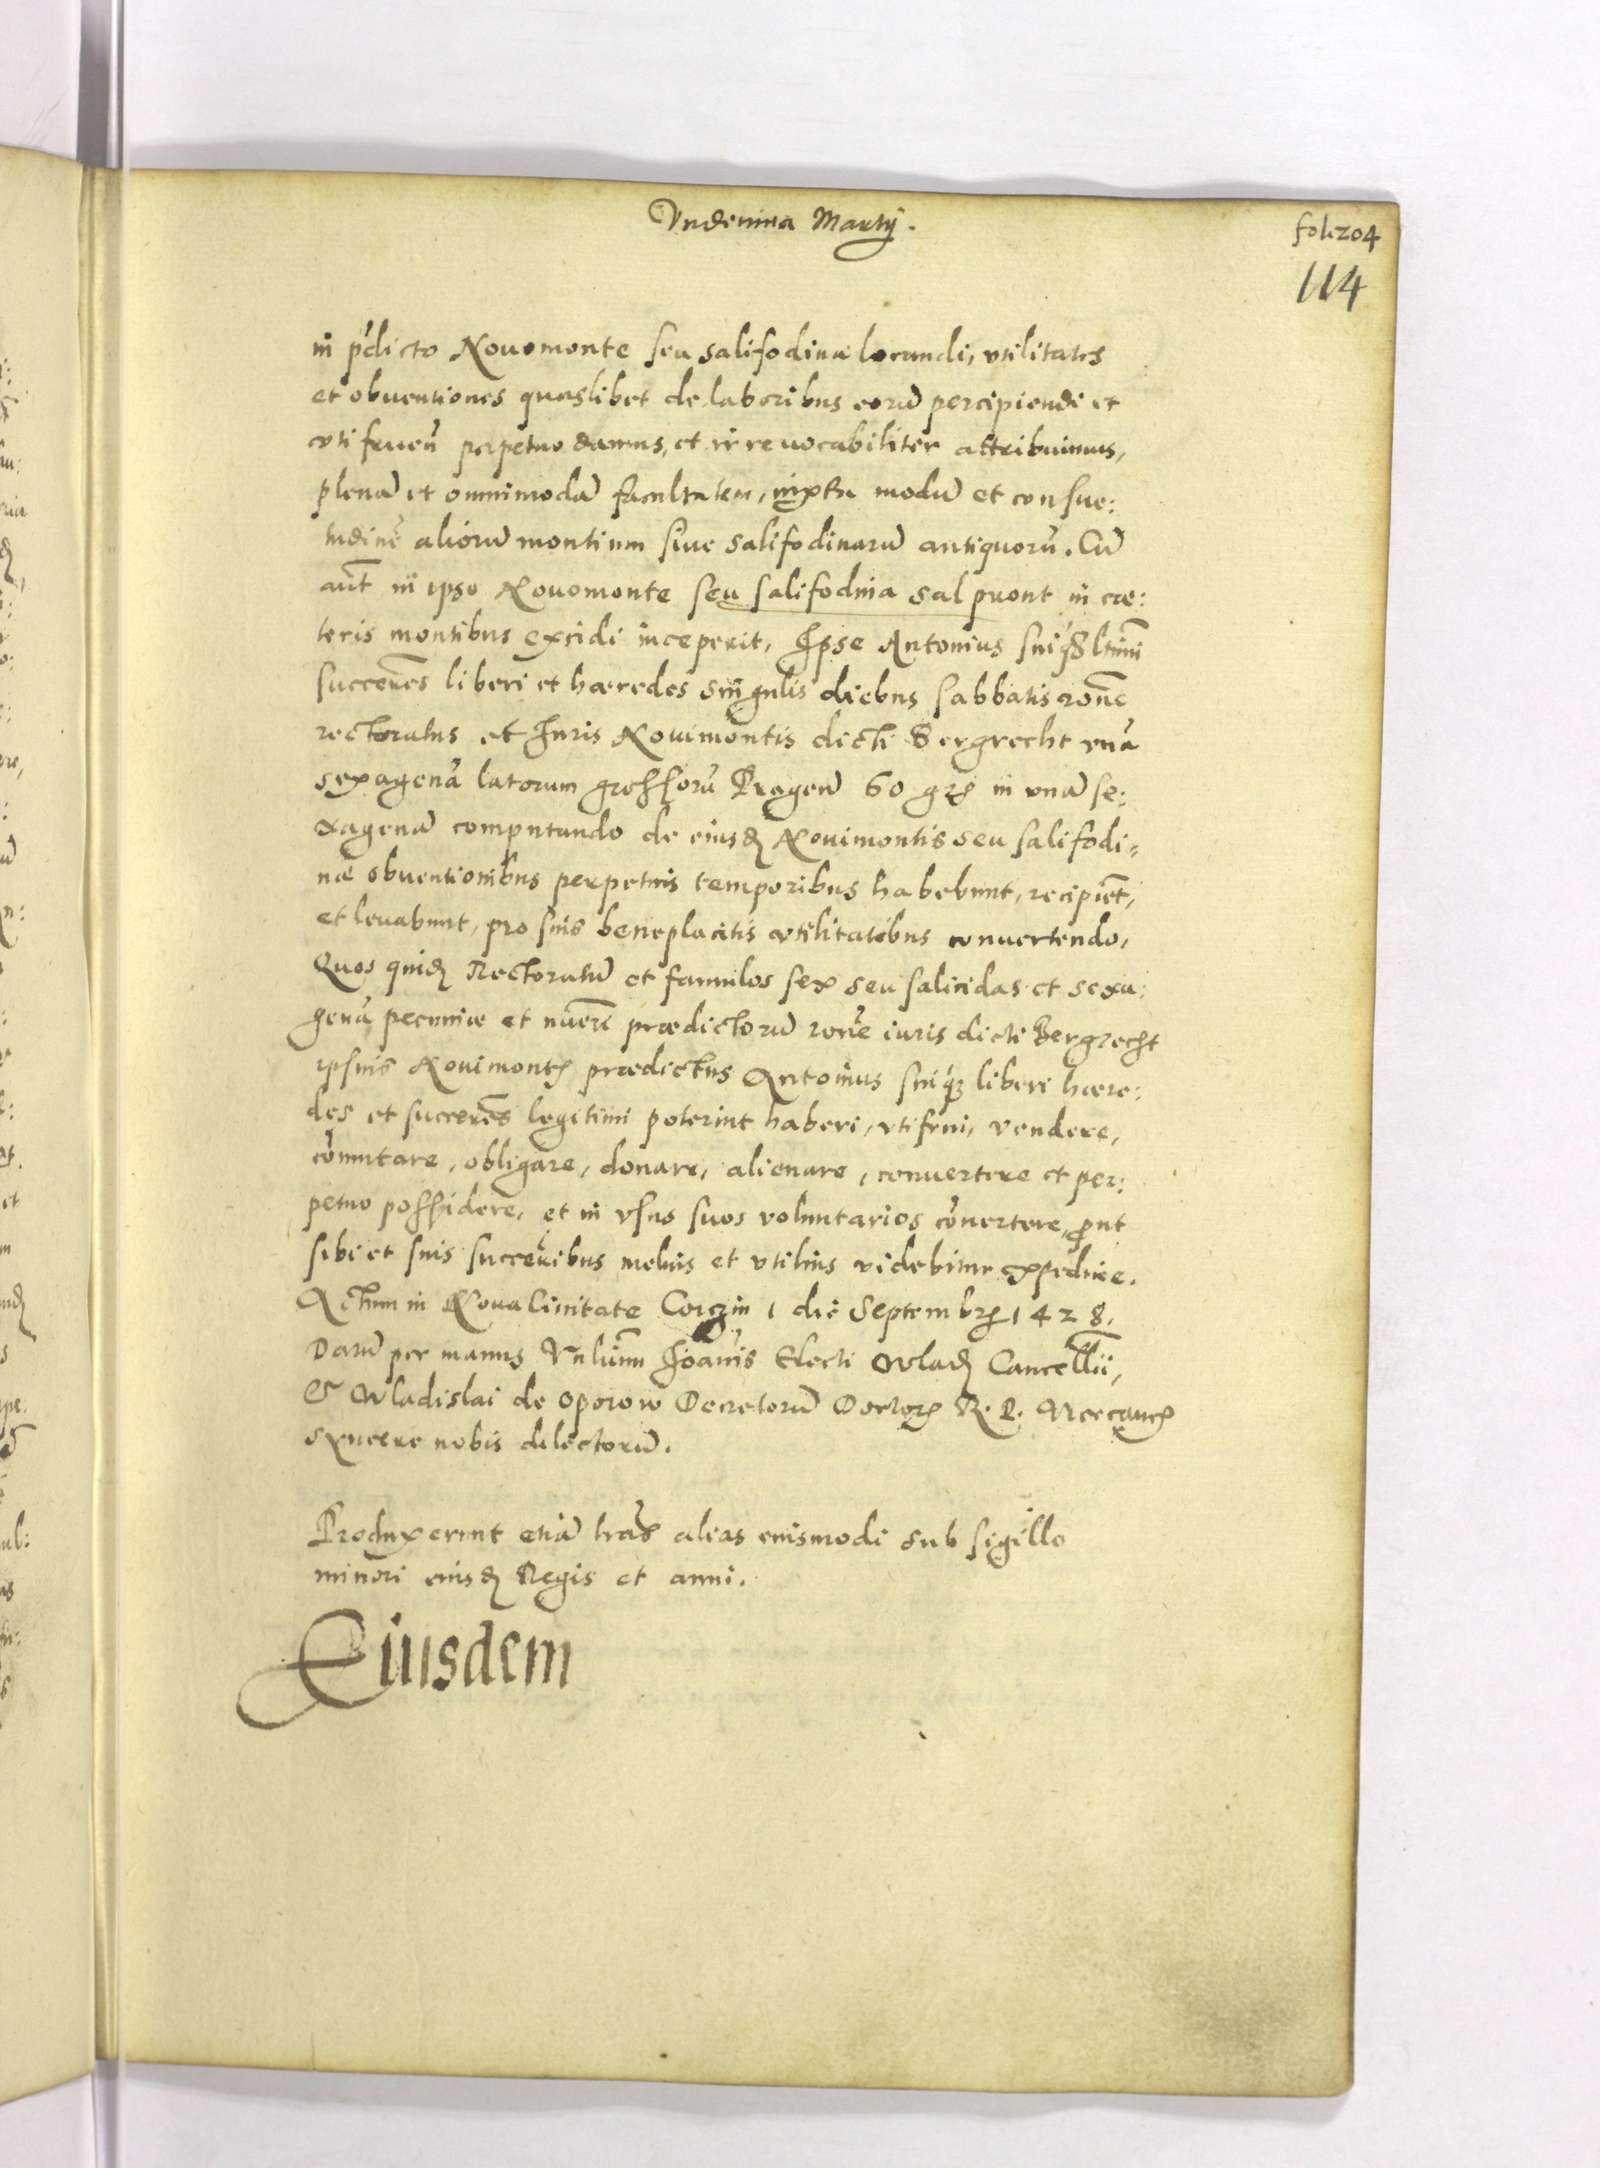 Vndenina Martij.
fol: 204
114
in p̃dicto Nouomonte seu salifodina locandi, vtilitates
et obuentiones quaslibet de laboribus eorũ percipiendi et
vtifrueñ perpetuo damus, et irreuocabiliter attribuimus,
plenã et omnimodã facultatem, iuxta modũ et consue:
tudinẽ aliorũ montium siue salifodinarũ antiquorũ. Cũ
aũt in ipso Nouomonte seu salifodina sal pront in cæ:
teris montibus excidi inceperit, Ipse Antonius suiq́₃ ltimi
succeres liberi et hæredes singulis diebus sabbatis rõne
rectoratus et Iuris Nouimontis dicti Bergrecht vnã
sexagenã latorum grossorũ Pragen̄ 60 grs in vnã se:
xagenã computando de eiusdẽ Nouimontis seu salifodi=
næ obuentionibus perpetuis temporibus habebunt, recipiẽt,
et leuabunt, pro suis beneplacitis vtilitatibus conuertendo,
Quos quidẽ Rectoratũ et famulos sex seu salicidas et sexa:
genã pecuniæ et nũeri prædictorũ rõne iuris dicti Bergrecht
ipsius Nouimontis prædictus Antonius suiq́₃ liberi hære:
des et succeres legitimi poterint haberi, vtifrui, vendere,
cõmutare, obligare, donare, alienare, conuertere et per:
petuo possidere, et in vsus suos voluntarios cõuertere, ꝓut
sibi et suis succeribus melius et vtilius videbitur expedire.
Actum in Noua Ciuitate Corczin 1 die Septembris 1428.
Datũ per manus Vnlium Ioañis Electi Wladẽ Cancellii,
& Wladislai de Oporow Decretorũ Doctoris R. P. Vcecancis
syncere nobis dilectorũ.
Produxerunt etiã lrãs alias eiusmodi sub sigillo
minori eiusdẽ Regis et anni.
Eiusdem